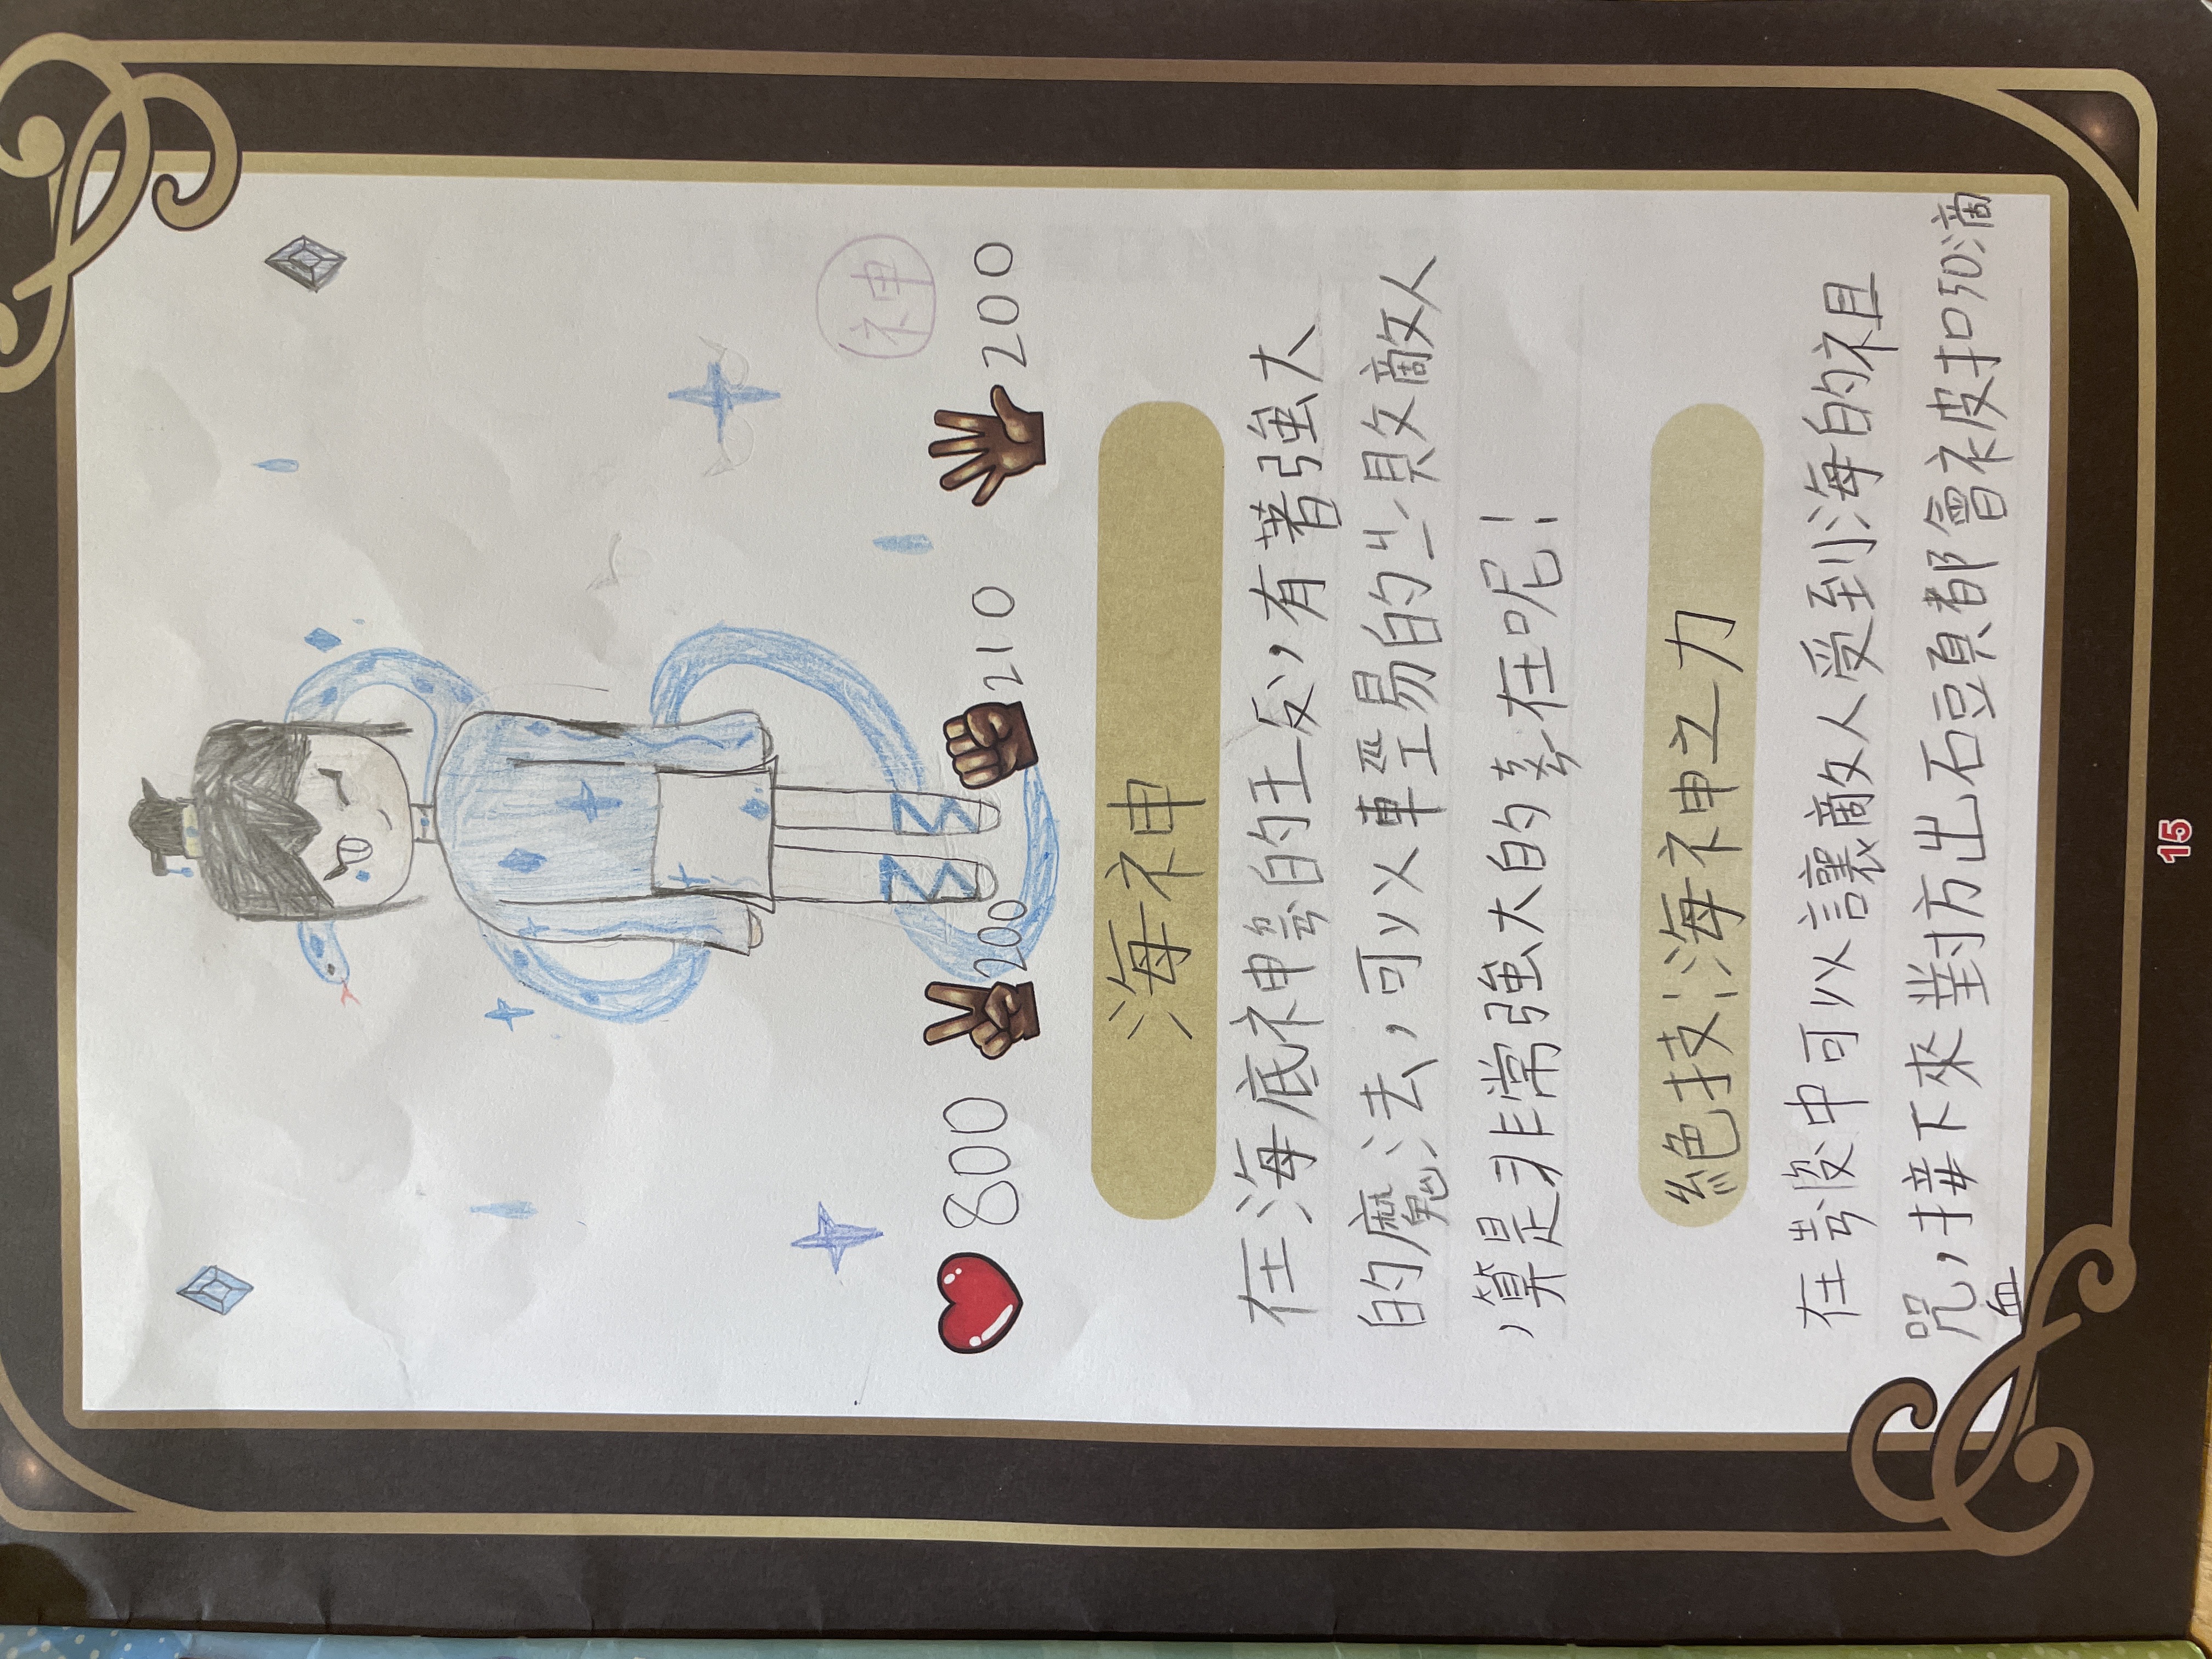 神
800 200 210 200
海神
在海底神界的王后,有著強大
的魔法,可以輕易的打敗敵人
,算是非常強大的存在呢!
絕技:海神之力
可以讓敵人受到海的詛
咒,接下來對方出石頭都會被扣50滴
血
15